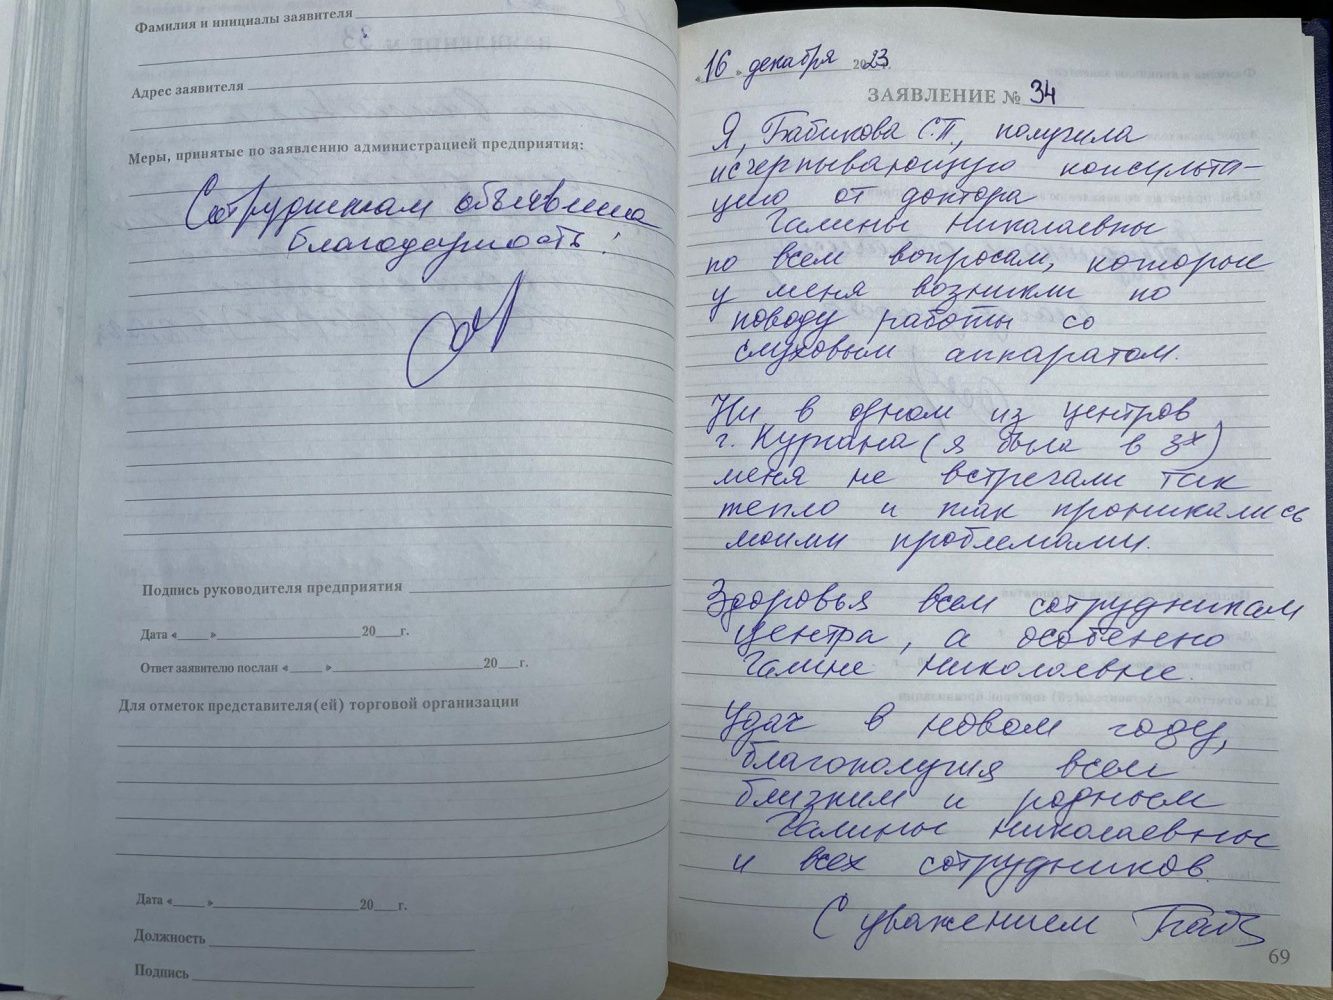 Фамилия и инициалы заявителя
Адрес заявителя
Меры, принятые по заявлению администрацией предприятия:
Сотрудникам объявлена
благодарность!
Подпись руководителя предприятия
Дата «___» ___ 20___г.
Ответ заявителю послан «___» ___ 20___г.
Для отметок представителя(ей) торговой организации
Дата «___» ___ 20___г.
Должность
Подпись
«16» декабря 2023г.
ЗАЯВЛЕНИЕ № 34
Я, Бабикова С.П., получила
исчерпывающую консульта-
цию от доктора
Галины Николаевны
по всем вопросам, которые
у меня возникли по
поводу работы со
слуховым аппаратом.
Ни в одном из центров
г. Кургана (я была в 3х)
меня не встречали так
тепло и так проникались
моими проблемами.
Здоровья всем сотрудникам
центра, а особенно
Галине Николаевне.
Удач в новом году,
благополучия всем
близким и родным
Галины Николаевны
и всех сотрудников.
С уважением
69